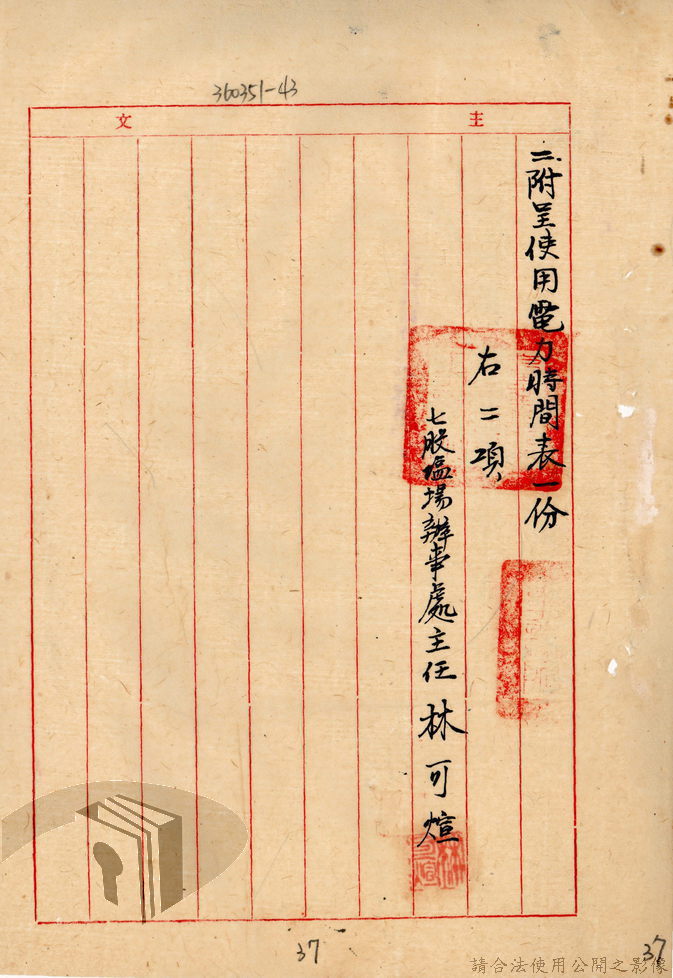 360351-43
主文
二.附呈使用電力時間表一份
右二項
七股塩場辦事處主任 林可煊
37
37
請合法使用公開之影像